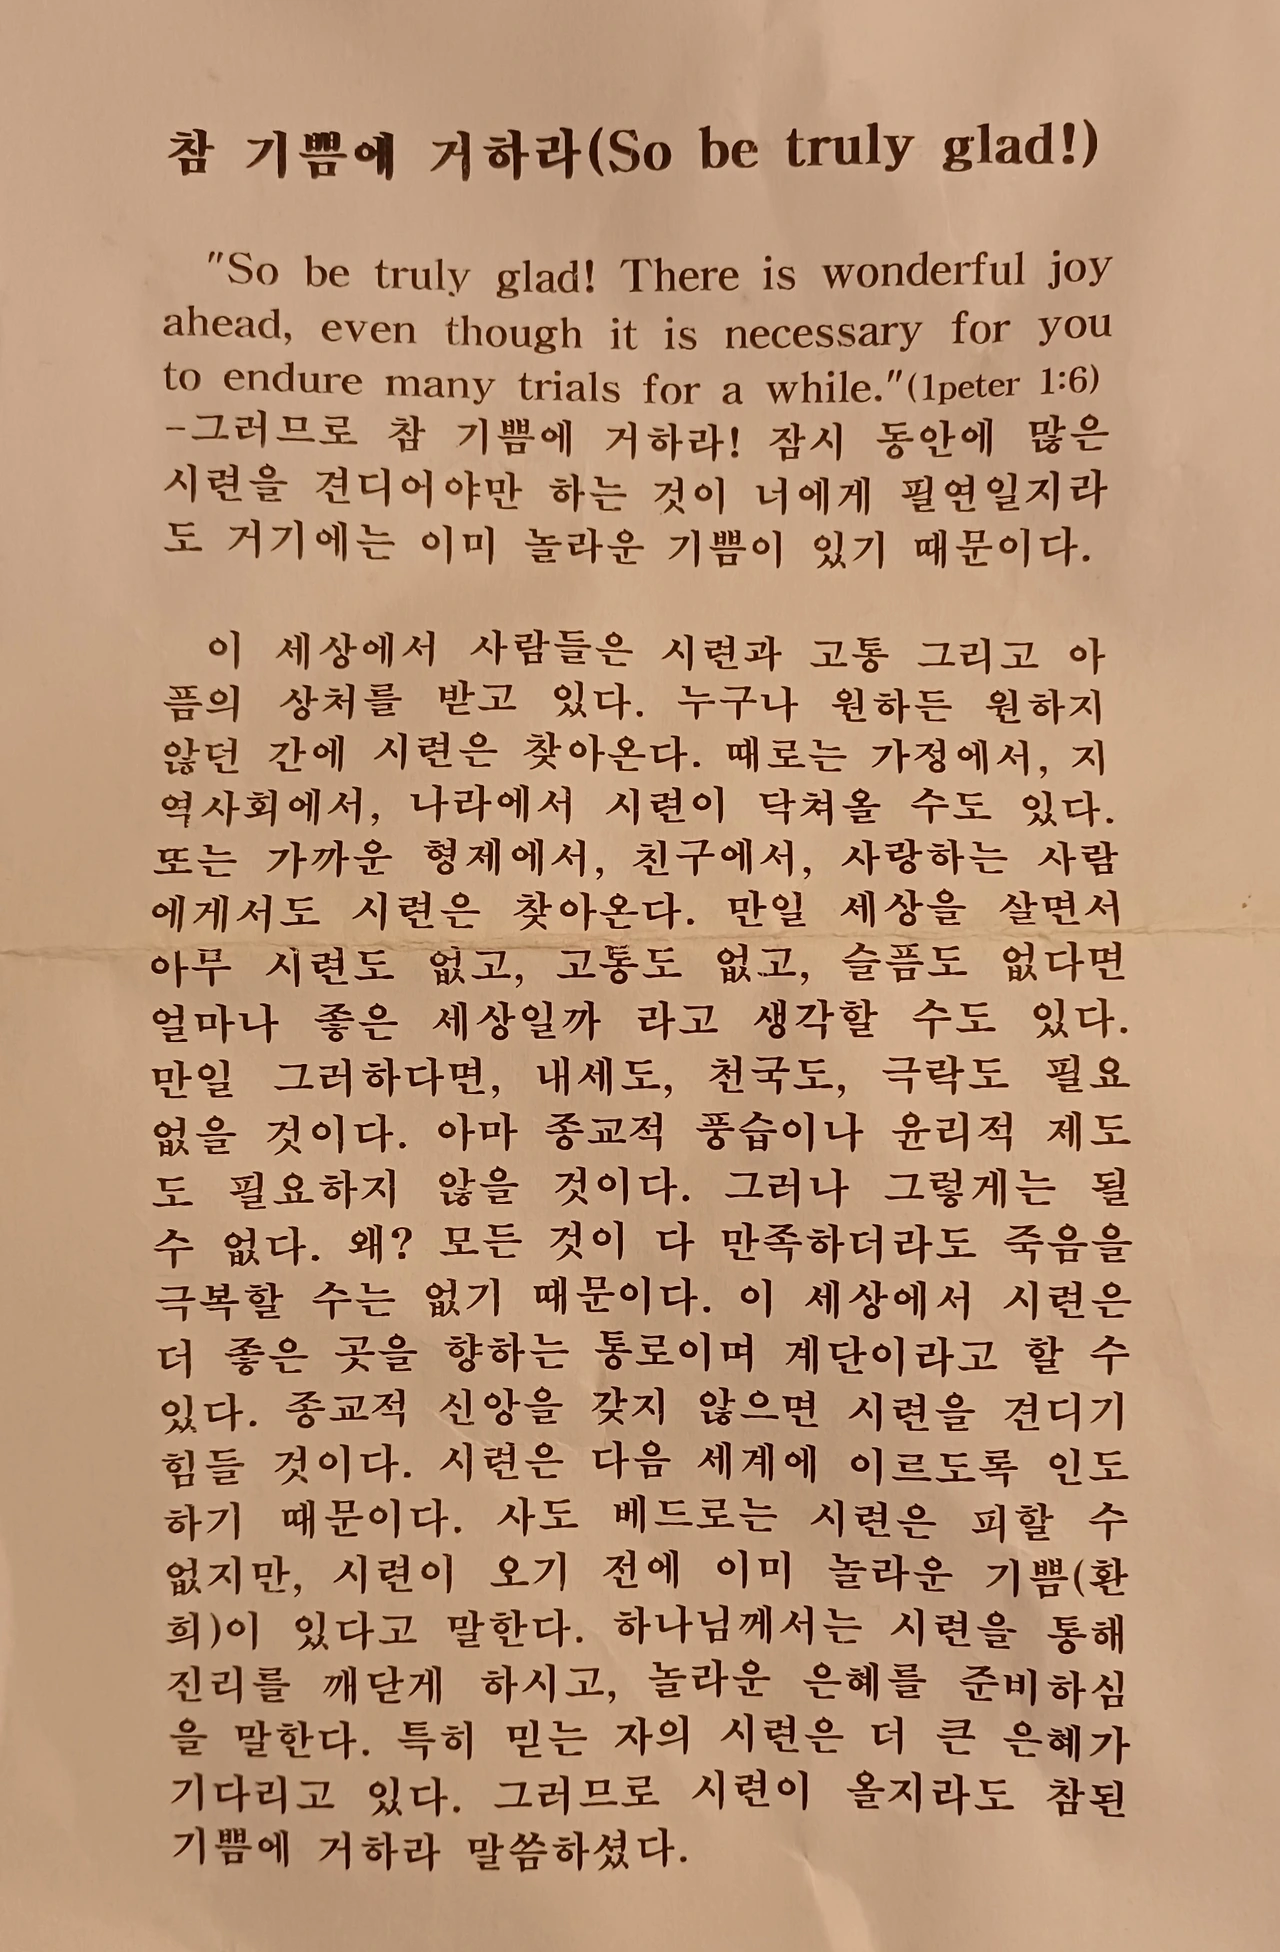 참 기쁨에 거하라(So be truly glad!)
"So be truly glad! There is wonderful joy
ahead, even though it is necessary for you
to endure many trials for a while."(1peter 1:6)
-그러므로 참 기쁨에 거하라! 잠시 동안에 많은
시련을 견디어야만 하는 것이 너에게 필연일지라
도 거기에는 이미 놀라운 기쁨이 있기 때문이다.
이 세상에서 사람들은 시련과 고통 그리고 아
픔의 상처를 받고 있다. 누구나 원하든 원하지
않던 간에 시련은 찾아온다. 때로는 가정에서, 지
역사회에서, 나라에서 시련이 닥쳐올 수도 있다.
또는 가까운 형제에서, 친구에서, 사랑하는 사람
에게서도 시련은 찾아온다. 만일 세상을 살면서
아무 시련도 없고, 고통도 없고, 슬픔도 없다면
얼마나 좋은 세상일까 라고 생각할 수도 있다.
만일 그러하다면, 내세도, 천국도, 극락도 필요
없을 것이다. 아마 종교적 풍습이나 윤리적 제도
도 필요하지 않을 것이다. 그러나 그렇게는 될
수 없다. 왜? 모든 것이 다 만족하더라도 죽음을
극복할 수는 없기 때문이다. 이 세상에서 시련은
더 좋은 곳을 향하는 통로이며 계단이라고 할 수
있다. 종교적 신앙을 갖지 않으면 시련을 견디기
힘들 것이다. 시련은 다음 세계에 이르도록 인도
하기 때문이다. 사도 베드로는 시련은 피할 수
없지만, 시련이 오기 전에 이미 놀라운 기쁨(환
희)이 있다고 말한다. 하나님께서는 시련을 통해
진리를 깨닫게 하시고, 놀라운 은혜를 준비하심
을 말한다. 특히 믿는 자의 시련은 더 큰 은혜가
기다리고 있다. 그러므로 시련이 올지라도 참된
기쁨에 거하라 말씀하셨다.